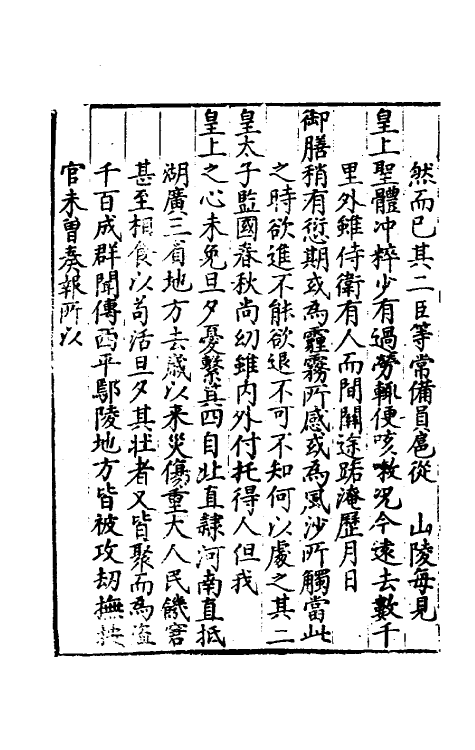 然而已其二臣等常備員扈從　山陵每見
皇上聖體冲粹少有過勞輒便咳嗽况今遠去數千
里外雖侍衛有人而間關途路淹歷月日
御膳稍有愆期或為霾霧所感或為風沙所觸當此
之時欲進不能欲退不可不知何以處之其二
皇太子監國春秋尚幼雖内外付托得人但我
皇上之心未免旦夕憂繫其四自北直隷河南直抵
湖廣三省地方去歲以来災傷重大人民饑窘
甚至相食以苟活旦夕其壮者又皆聚而為盗
千百成群聞傳西平鄢陵地方皆被攻刼撫
官未曾奏報所以